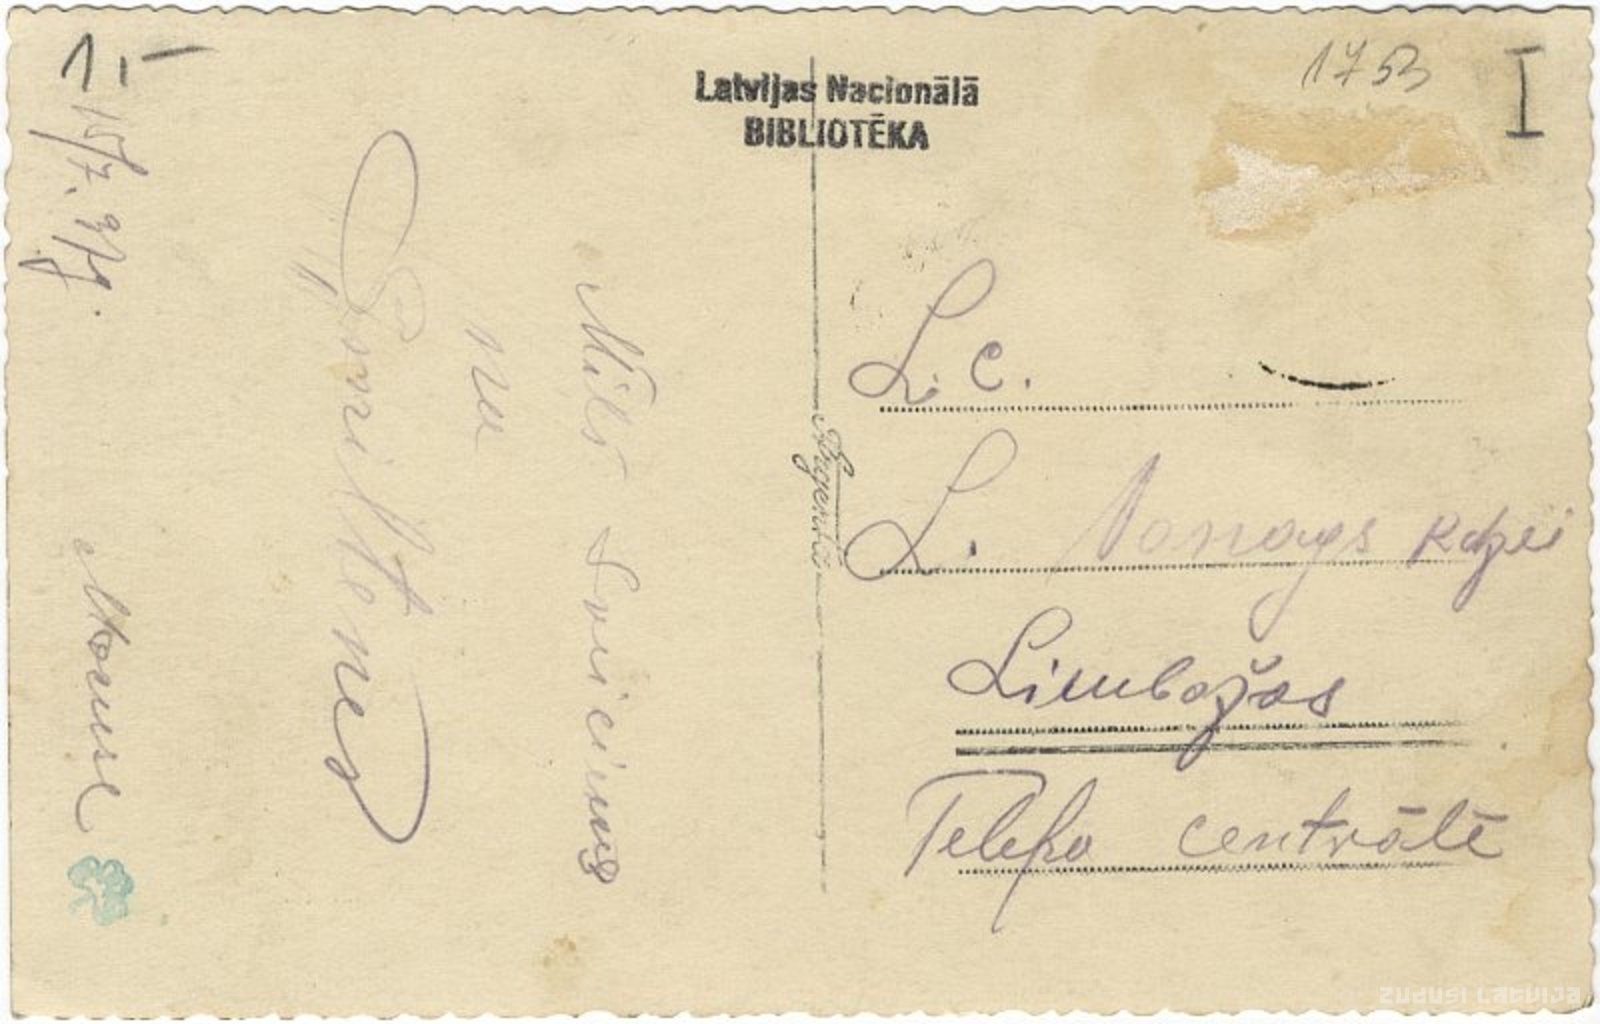 1.-
Latvijas Nacionālā
BIBLIOTĒKA
1753
I
15/7.
Mīļš sveiciens
no
Mouse
L. C.
L. Vanags kdzei
Limbažos
Telefo centrālē
ZUDUSI LATVIJA